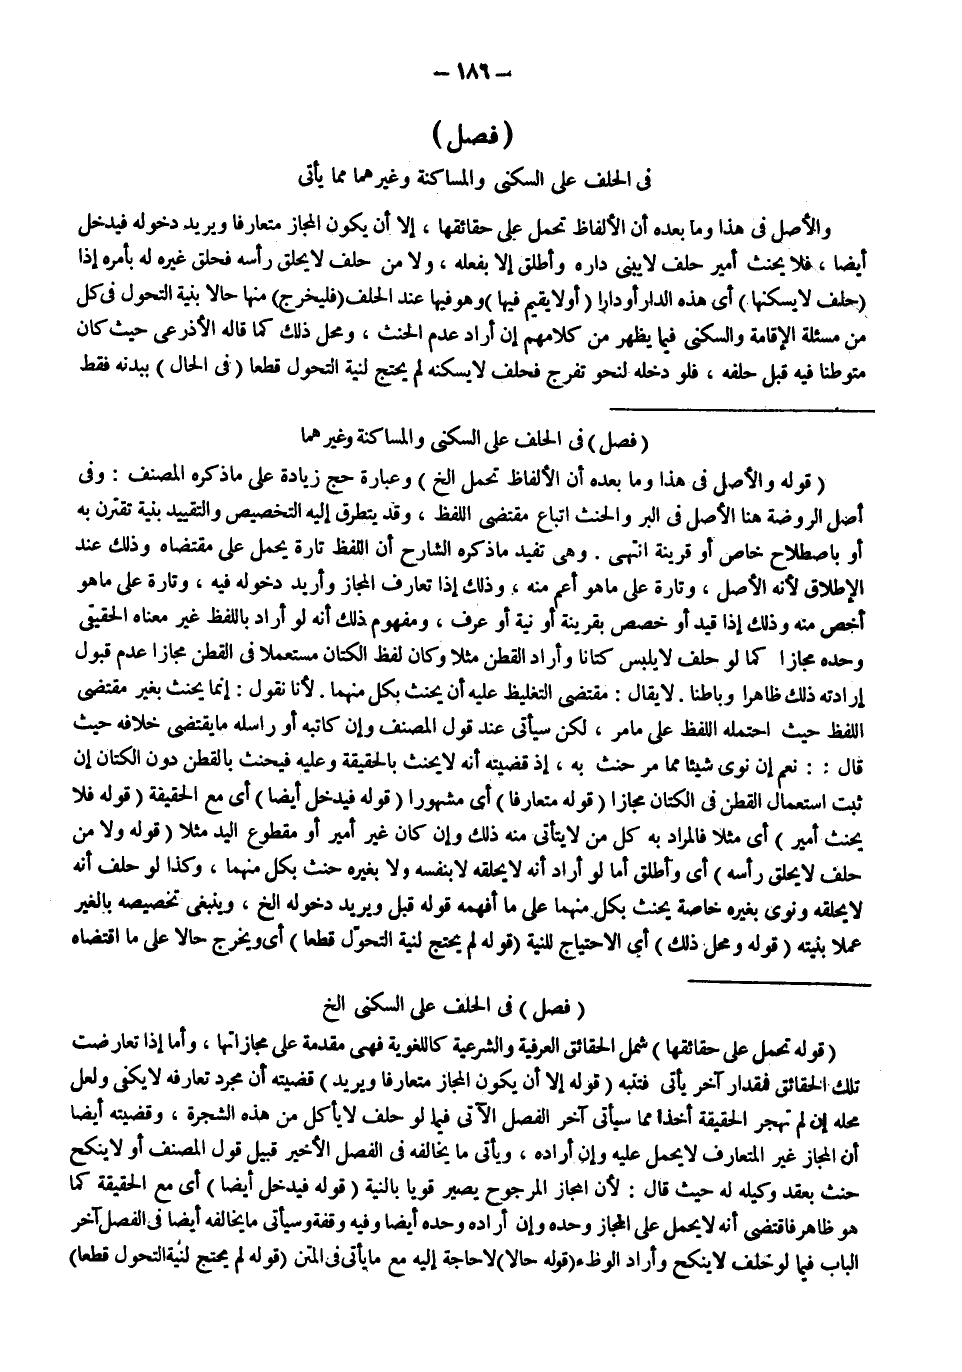 – ١٨٦ –
( فصل )
فى الحلف على السكنى والمساكنة وغيرهما مما يأتى
والأصل فى هذا وما بعده أن الألفاظ تحمل على حقائقها ، إلا أن يكون المجاز متعارفا ويريد دخوله فيدخل
أيضا ، فلا يحنث أمير حلف لايبنى داره وأطلق إلا بفعله ، ولا من حلف لايحلق رأسه فحلق غيره له بأمره إذا
(حلف لايسكنها ) أى هذه الدار أو دارا ( أولايقيم فيها ) وهوفيها عند الحلف (فليخرج) منها حالا بنية التحول فى كل
من مسئلة الإقامة والسكنى فيما يظهر من كلامهم إن أراد عدم الحنث ، ومحل ذلك كما قاله الأذرعى حيث كان
متوطنا فيه قبل حلفه ، فلو دخله لنحو تفرج فحلف لايسكنه لم يحتج لنية التحول قطعا ( فى الحال ) ببدنه فقط
( فصل ) فى الحلف على السكنى والمساكنة وغيرهما
( قوله والأصل فى هذا وما بعده أن الألفاظ تحمل الخ ) وعبارة حج زيادة على ماذكره المصنف : وفى
أصل الروضة هنا الأصل فى البر والحنث اتباع مقتضى اللفظ ، وقد يتطرق إليه التخصيص والتقييد بنية تقترن به
أو باصطلاح خاص أو قرينة انتهى . وهى تفيد ماذكره الشارح أن اللفظ تارة يحمل على مقتضاه وذلك عند
الإطلاق لأنه الأصل ، وتارة على ماهو أعم منه ، وذلك إذا تعارف المجاز وأريد دخوله فيه ، وتارة على ماهو
أخص منه وذلك إذا قيد أو خصص بقرينة أو نية أو عرف ، ومفهوم ذلك أنه لو أراد باللفظ غير معناه الحقيقى
وحده مجازا كما لو حلف لايلبس كتانا وأراد القطن مثلا وكان لفظ الكتان مستعملا فى القطن مجازا عدم قبول
إرادته ذلك ظاهرا وباطنا . لايقال : مقتضى التغليظ عليه أن يحنث بكل منهما . لأنا نقول : إنما يحنث بغير مقتضى
اللفظ حيث احتمله اللفظ على مامر ، لكن سيأتى عند قول المصنف وإن كاتبه أو راسله مايقتضى خلافه حيث
قال : : نعم إن نوى شيئا مما مر حنث به ، إذ قضيته أنه لايحنث بالحقيقة وعليه فيحنث بالقطن دون الكتان إن
ثبت استعمال القطن فى الكتان مجازا ( قوله متعارفا ) أى مشهورا ( قوله فيدخل أيضا ) أى مع الحقيقة ( قوله فلا
يحنث أمير ) أى مثلا فالمراد به كل من لايتأتى منه ذلك وإن كان غير أمير أو مقطوع اليد مثلا ( قوله ولا من
حلف لايحلق رأسه ) أى وأطلق أما لو أراد أنه لايحلقه لابنفسه ولا بغيره حنث بكل منهما ، وكذا لو حلف أنه
لايحلقه ونوى بغيره خاصة يحنث بكل منهما على ما أفهمه قوله قبل ويريد دخوله الخ ، وينبغى تخصيصه بالغير
عملا بنيته ( قوله ومحل ذلك ) أى الاحتياج للنية (قوله لم يحتج لنية التحوّل قطعا ) أى ويخرج حالا على ما اقتضاه
( فصل ) فى الحلف على السكنى الخ
( قوله تحمل على حقائقها ) شمل الحقائق العرفية والشرعية كاللغوية فهى مقدمة على مجازاتها ، وأما إذا تعارضت
تلك الحقائق فمقدار آخر يأتى فتنبه ( قوله إلا أن يكون المجاز متعارفا ويريد ) قضيته أن مجرد تعارفه لايكفى ولعل
محله إن لم تهجر الحقيقة أخذا مما سيأتى آخر الفصل الآتى فيما لو حلف لايأكل من هذه الشجرة ، وقضيته أيضا
أن المجاز غير المتعارف لايحمل عليه وإن أراده ، ويأتى ما يخالفه فى الفصل الأخير قبيل قول المصنف أو لاينكح
حنث بعقد وكيله له حيث قال : لأن المجاز المرجوح يصير قويا بالنية ( قوله فيدخل أيضا ) أى مع الحقيقة كما
هو ظاهر فاقتضى أنه لايحمل على المجاز وحده وإن أراده وحده أيضا وفيه وقفة وسيأتى مايخالفه أيضا فى الفصل آخر
الباب فيما لو حلف لاينكح وأراد الوطء (قوله حالا) لاحاجة إليه مع مايأتى فى المتن (قوله لم يحتج لنية التحول قطعا)